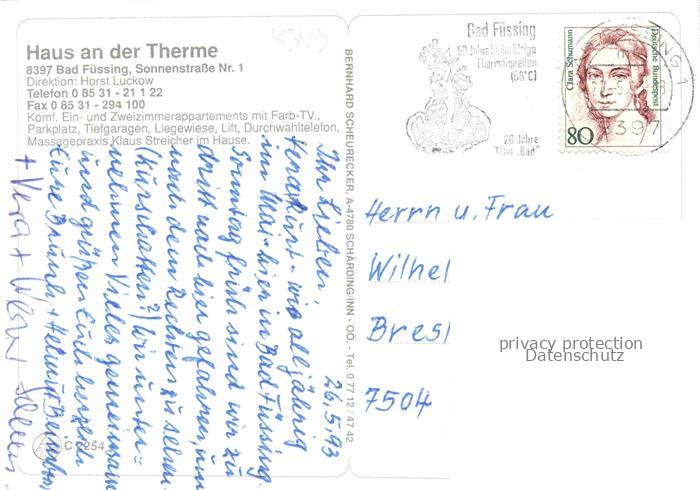 8399
Haus an der Therme
8397 Bad Füssing, Sonnenstraße Nr. 1
Direktion: Horst Luckow
Telefon 0 85 31 - 21 1 22
Fax 0 85 31 - 294 100
Komf. Ein- und Zweizimmerappartements mit Farb-TV.,
Parkplatz, Tiefgaragen, Liegewiese, Lift, Durchwahltelefon,
Massagepraxis Klaus Streicher im Hause.
Ihr Lieben, 26.5.93
- wie alljährig
im Mai - hier in Bad Füssing.
Sonntag früh sind wir zu
dritt nach hier gefahren, um
nach dem Rechten zu sehen.
(Kurschatten?) Wir unter=
nehmen Vieles gemeinsam
und grüßen Euch herzlich
Eure + Helmut
+ Vera + Werner
C 2254
BERNHARD SCHEURECKER, A-4780 SCHÄRDING/INN - OÖ. - Tel. 0 77 12 / 47 42
Bad Füssing
50 Jahre heilkräftige
Thermalquellen
(56°C)
20 Jahre
Titel „Bad"
Clara Schumann
Deutsche Bundespost
80
8397
Herrn u. Frau
Wilhel
Bresl
7504
privacy protection
Datenschutz